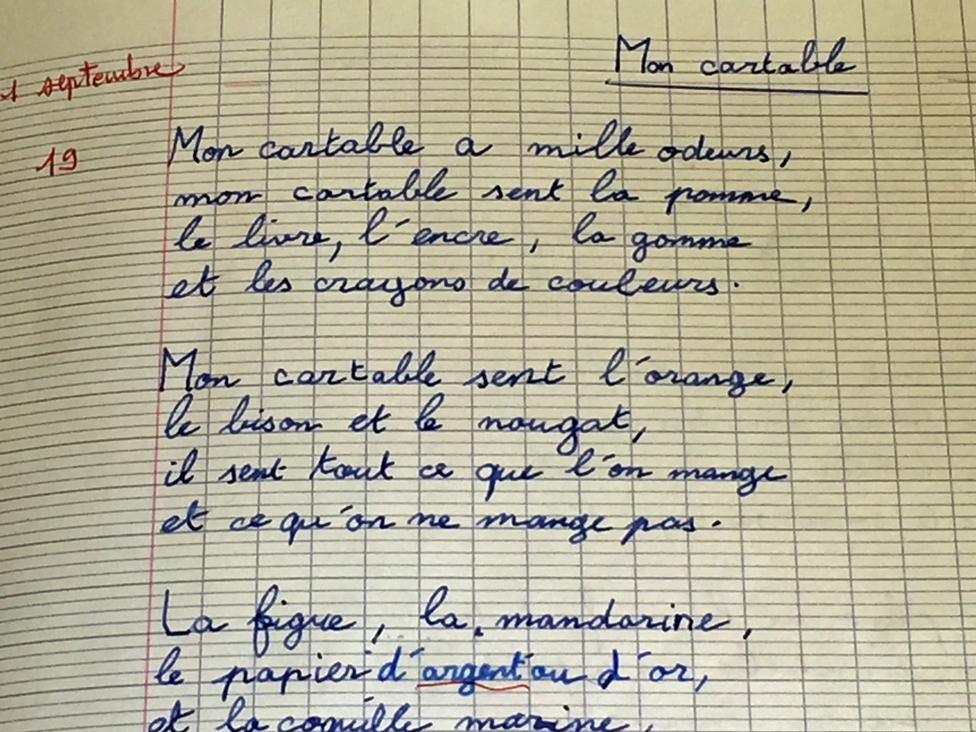 septembre
Mon cartable
19
Mon cartable a mille odeurs,
mon cartable sent la pomme,
le livre, l'encre, la gomme
et les crayons de couleurs.
Mon cartable sent l'orange,
le bison et le nougat,
il sent tout ce que l'on mange
et ce qu'on ne mange pas.
La figue, la mandarine,
le papier d'argent ou d'or,
et la coquille marine,